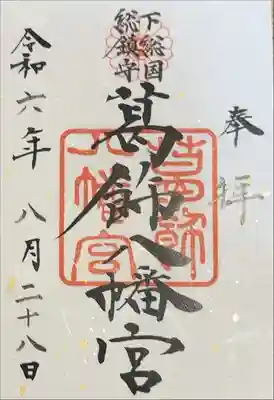 奉拝
下総国
総鎮守
葛飾八幡宮
葛飾
八幡宮
令和六年八月二十八日